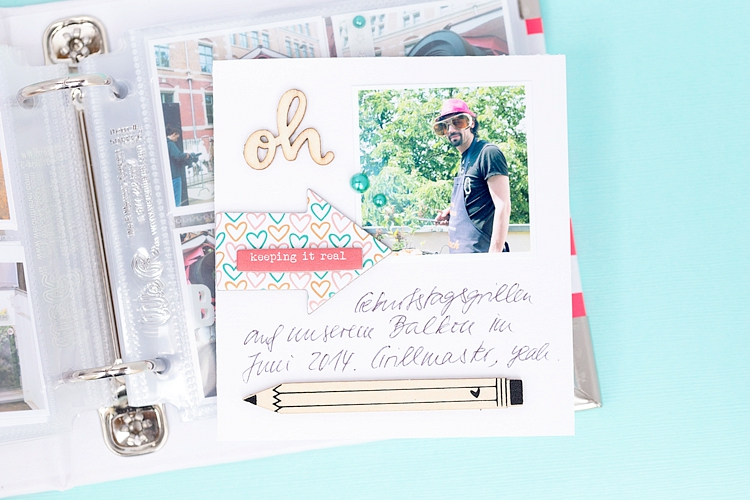 oh
keeping it real
Geburtstagsgrillen
auf unserem Balkon im
Juni 2014. Grillmaster, yeah.
We R